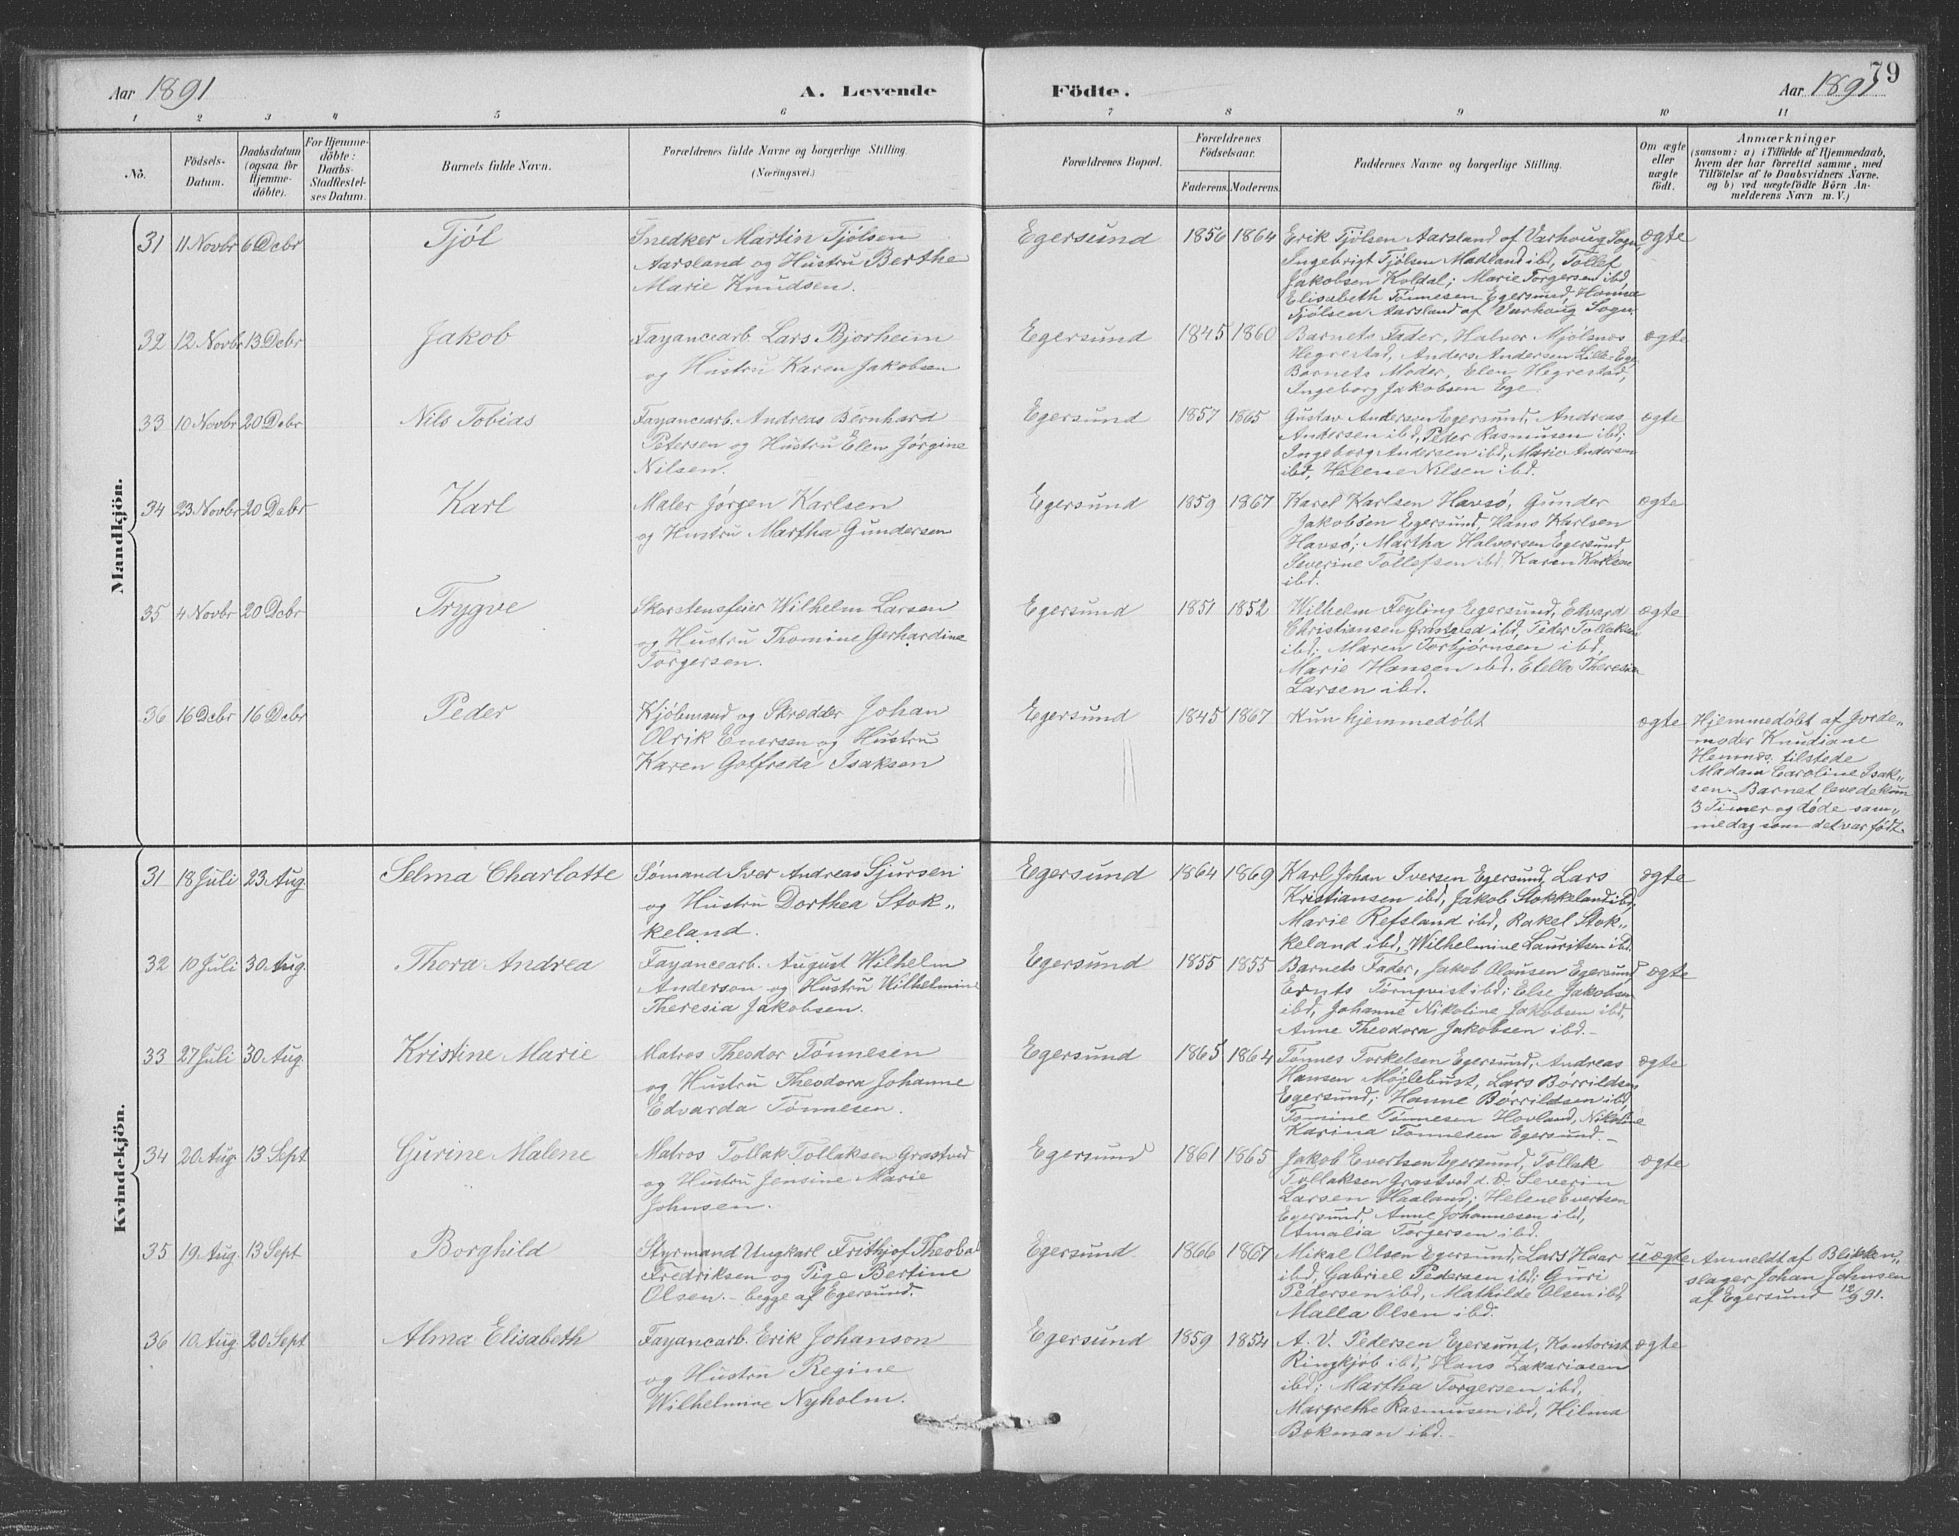 Aar 1891 A. Levende Födte. Aar 1891 79
1 2 3 4 5 6 7 8 9 10 11
No. Födsels-Datum. Daabsdatum (ogsaa for Hjemme-döbte). For Hjemme-döbte: Daabs-Stadfæstel-ses Datum. Barnets fulde Navn. Forældrenes fulde Navne og borgerlige Stilling. (Næringsvei.) Forældrenes Bopæl. Forældrenes Födselsaar. Faderens. Moderens. Faddernes Navne og borgerlige Stilling. Om ægte eller uægte födt. Anmærkninger (saasom: a) i Tilfælde af Hjemmedaab, hvem der har forrettet samme, med Tilföielse af to Daabsvidners Navne, og b) ved uægtefödte Börn An-melderens Navn m. V.)
Mandkjön.
31 11 Novbr 6 Debr Tjøl Snedker Martin Tjølsen
Aarsland og Hustru Berthe
Marie Knudsen.
Egersund 1856 1864 Erik Tjølsen Aarsland af Varhoug Sogn, ægte
Ingebrigt Tjølsen Madland ibd, Tollef
Jakobsen Koldal; Marie Torgersen ibd,
Elisabeth Tønnesen Egersund, Hanne
Tjølsen Aarsland af Varhoug Sogn.
32 12 Novbr 13 Debr Jakob Fayancearb. Lars Bjorheim
og Hustru Karen Jakobsen
Egersund 1845 1860 Barnets Fader, Halvor Mjølsnes ægte
Hegrestad, Anders Andersen Lille Ege,
Barnets Moder, Elen Hegrestad,
Ingeborg Jakobsen Ege.
33 10 Novbr 20 Debr Nils Tobias Fayancearb. Andreas Bernhard
Petersen og Hustru Elen Jørgine
Nilsen.
Egersund 1857 1865 Gustav Andersen Egersund, Andreas ægte
Andersen ibd, Peder Rasmusen ibd;
Ingeborg Andersen ibd, Marie Andersen
ibd, Helene Nilsen ibd.
34 23 Novbr 20 Debr Karl Maler Jørgen Karlsen
og Hustru Martha Gundersen
Egersund 1859 1867 Karel Karlsen Havsø, Gunder ægte
Jakobsen Egersund, Hans Karlsen
Havsø; Martha Halvorsen Egersund,
Severine Tollefsen ibd, Karen Karlsen
ibd.
35 4 Novbr 20 Debr Trygve Skorstensfeier Wilhelm Larsen
og Hustru Thomine Gerhardine
Torgersen.
Egersund 1851 1852 Wilhelm Feyling Egersund, Edvard ægte
Christiansen Grastved ibd, Peder Tollaksen
ibd; Maren Torbjørnsen ibd,
Marie Hansen ibd. Etella Theresia
Larsen ibd.
36 16 Debr 16 Debr Peder Kjøbmand og Skrædder Johan
Olrik Enersen og Hustru
Karen Gotfreda Isaksen
Egersund 1845 1867 Kun hjemmedøbt ægte Hjemmedøbt af Jorde-
moder Knudiane
Hemnes, tilstede
Madam Caroline Isak-
sen. Barnet levede kun
3 Timer og døde sam-
medag som det var født.
Kvindekjön.
31 18 Juli 23 Aug. Selma Charlotte Sømand Iver Andreas Sjursen
og Hustru Dorthea Stok-
keland.
Egersund 1864 1869 Karl Johan Iversen Egersund, Lars ægte
Kristiansen ibd, Jakob Stokkeland ibd;
Marie Refsland ibd, Rakel Stok-
keland ibd, Wilhelmine Lauritsen ibd.
32 10 Juli 30 Aug. Thora Andrea Fayancearb. August Wilhelm
Anderson og Hustru Wilhelmine
Theresia Jakobsen.
Egersund 1855 1855 Barnets Fader, Jakob Olausen Egersund, ægte
Ernts Tørnqvist ibd; Else Jakobsen
ibd, Johanne Nikoline Jakobsen ibd,
Anne Theodora Jakobsen ibd.
33 27 Juli 30 Aug. Kristine Marie Matros Theodor Tønnesen
og Hustru Theodora Johanne
Edvarda Tønnesen.
Egersund 1865 1864 Tønnes Torkelsen Egersund, Andreas ægte
Hansen Møglebust, Lars Borrildsen
Egersund; Hanne Borrildsen ibd,
Tomine Tønnesen Hovland, Nikoline
Karina Tønnesen Egersund.
34 20 Aug 13 Sept Gurine Malene Matros Tollak Tollaksen Grastved
og Hustru Jensine Marie
Johnsen.
Egersund 1861 1865 Jakob Evertsen Egersund, Tollak ægte
Tollaksen Grastved d. Æ. Severin
Larsen Haaland; Helene Evertsen
Egersund, Anne Johannesen ibd,
Amalia Torgersen ibd.
35 19 Aug 13 Sept Borghild Styrmand Ungkarl Frithjof Theobal
Fredriksen og Pige Bertine
Olsen. - begge af Egersund.
Egersund 1866 1867 Mikal Olsen Egersund, Lars Haar uægte Anmeldt af Blikken-
ibd, Gabriel Pedersen ibd; Guri slager Johan Johnsen
Pedersen ibd, Mathilde Olsen ibd, af Egersund 12/9 91.
Malla Olsen ibd.
36 10 Aug 20 Sept Alma Elisabeth Fayancearb. Erik Johanson
og Hustru Regine
Wilhelmine Nyholm.
Egersund 1859 1854 A. V. Pedersen Egersund, Kontorist ægte
Ringkjøb ibd, Hans Zakariasen
ibd; Martha Torgersen ibd,
Margrethe Rasmusen ibd, Hilma
Bokman ibd.